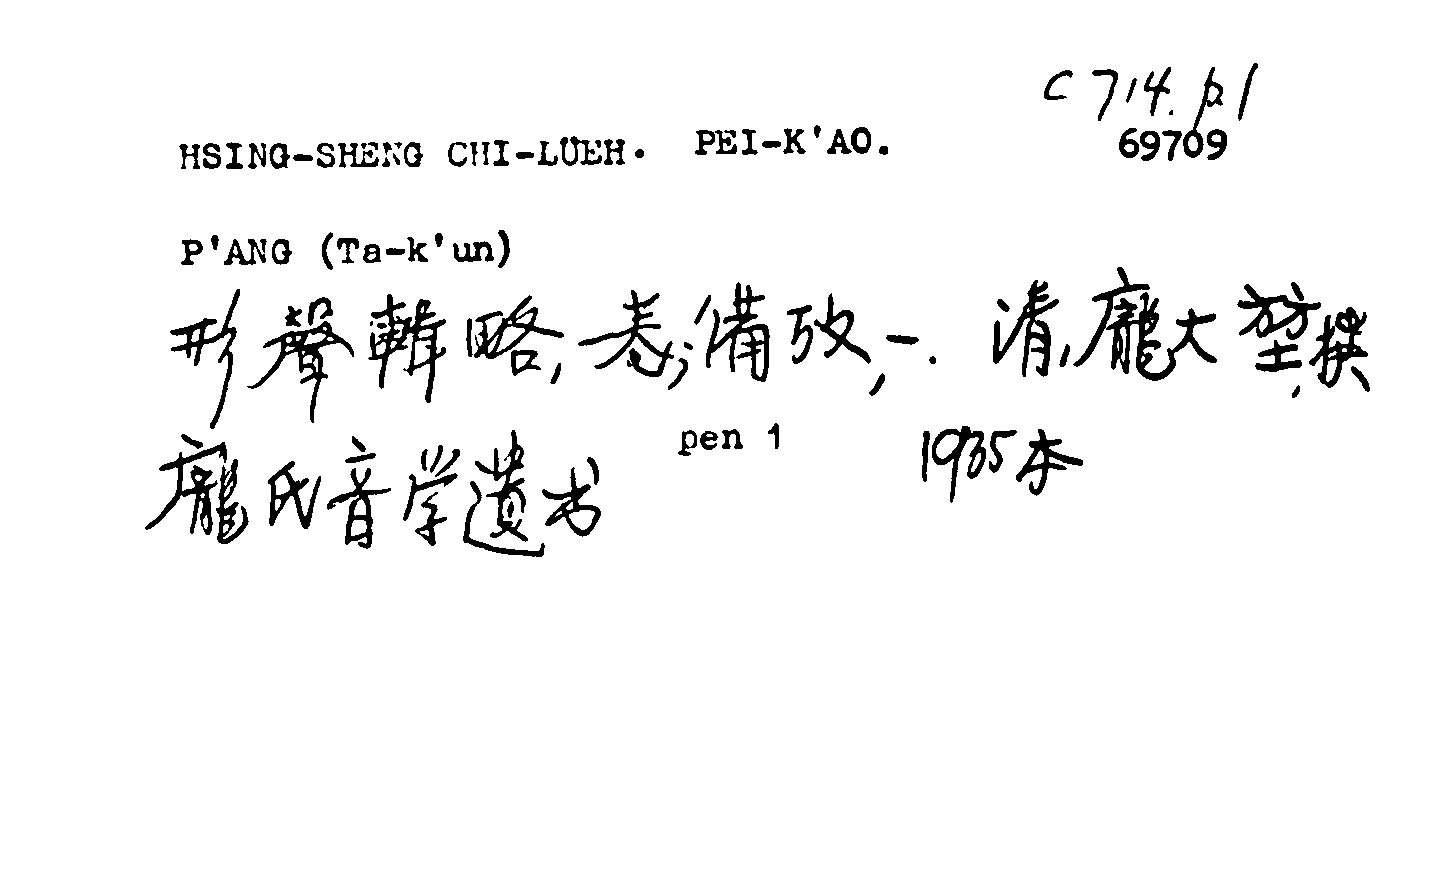 C 714. p.1
HSING-SHENG CHI-LÜEH. PEI-K'AO. 69709
P'ANG (Ta-k'un)
形聲輯略,一卷;備攷,一. 清,龐大堃,撰
龐氏音学遺书 pen 1 1935本